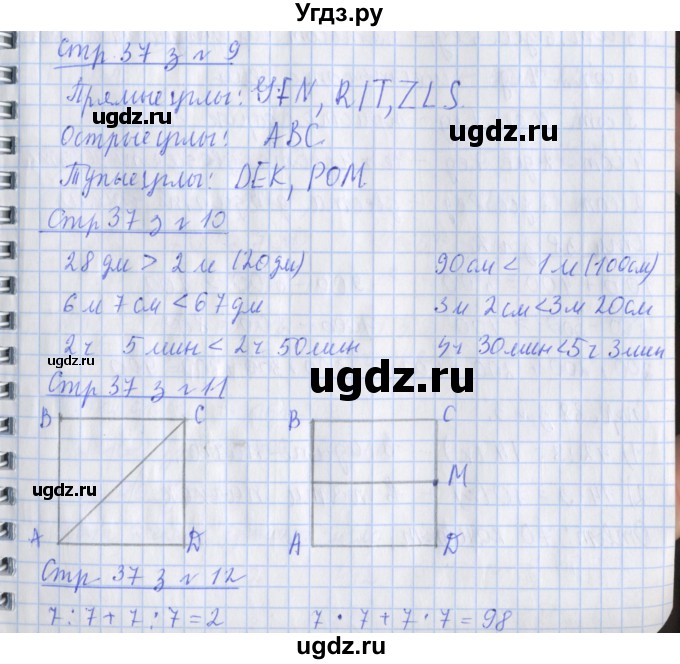 Угдз.ру
Стр 37 з № 9
Прямые углы: YFN, RIT, ZLS.
ugdz.ru ugdz.ru
Острые углы: ABC
Тупые углы: DEK, POM
ugdz.ru
Стр 37 з № 10
28 дм > 2 м (20 дм) 90 см < 1 м (100 см)
ugdz.ru ugdz.ru
6 м 7 см < 67 дм 3 м 2 см < 3 м 20 см
2 ч 5 мин < 2 ч 50 мин 4 ч 30 мин < 5 ч 3 мин
ugdz.ru
Стр 37 з № 11
ugdz.ru
B C B C
ugdz.ru M
A D A D
ugdz.ru ugdz.ru
Стр 37 з № 12
7 : 7 + 7 : 7 = 2 7 · 7 + 7 · 7 = 98
ugdz.ru